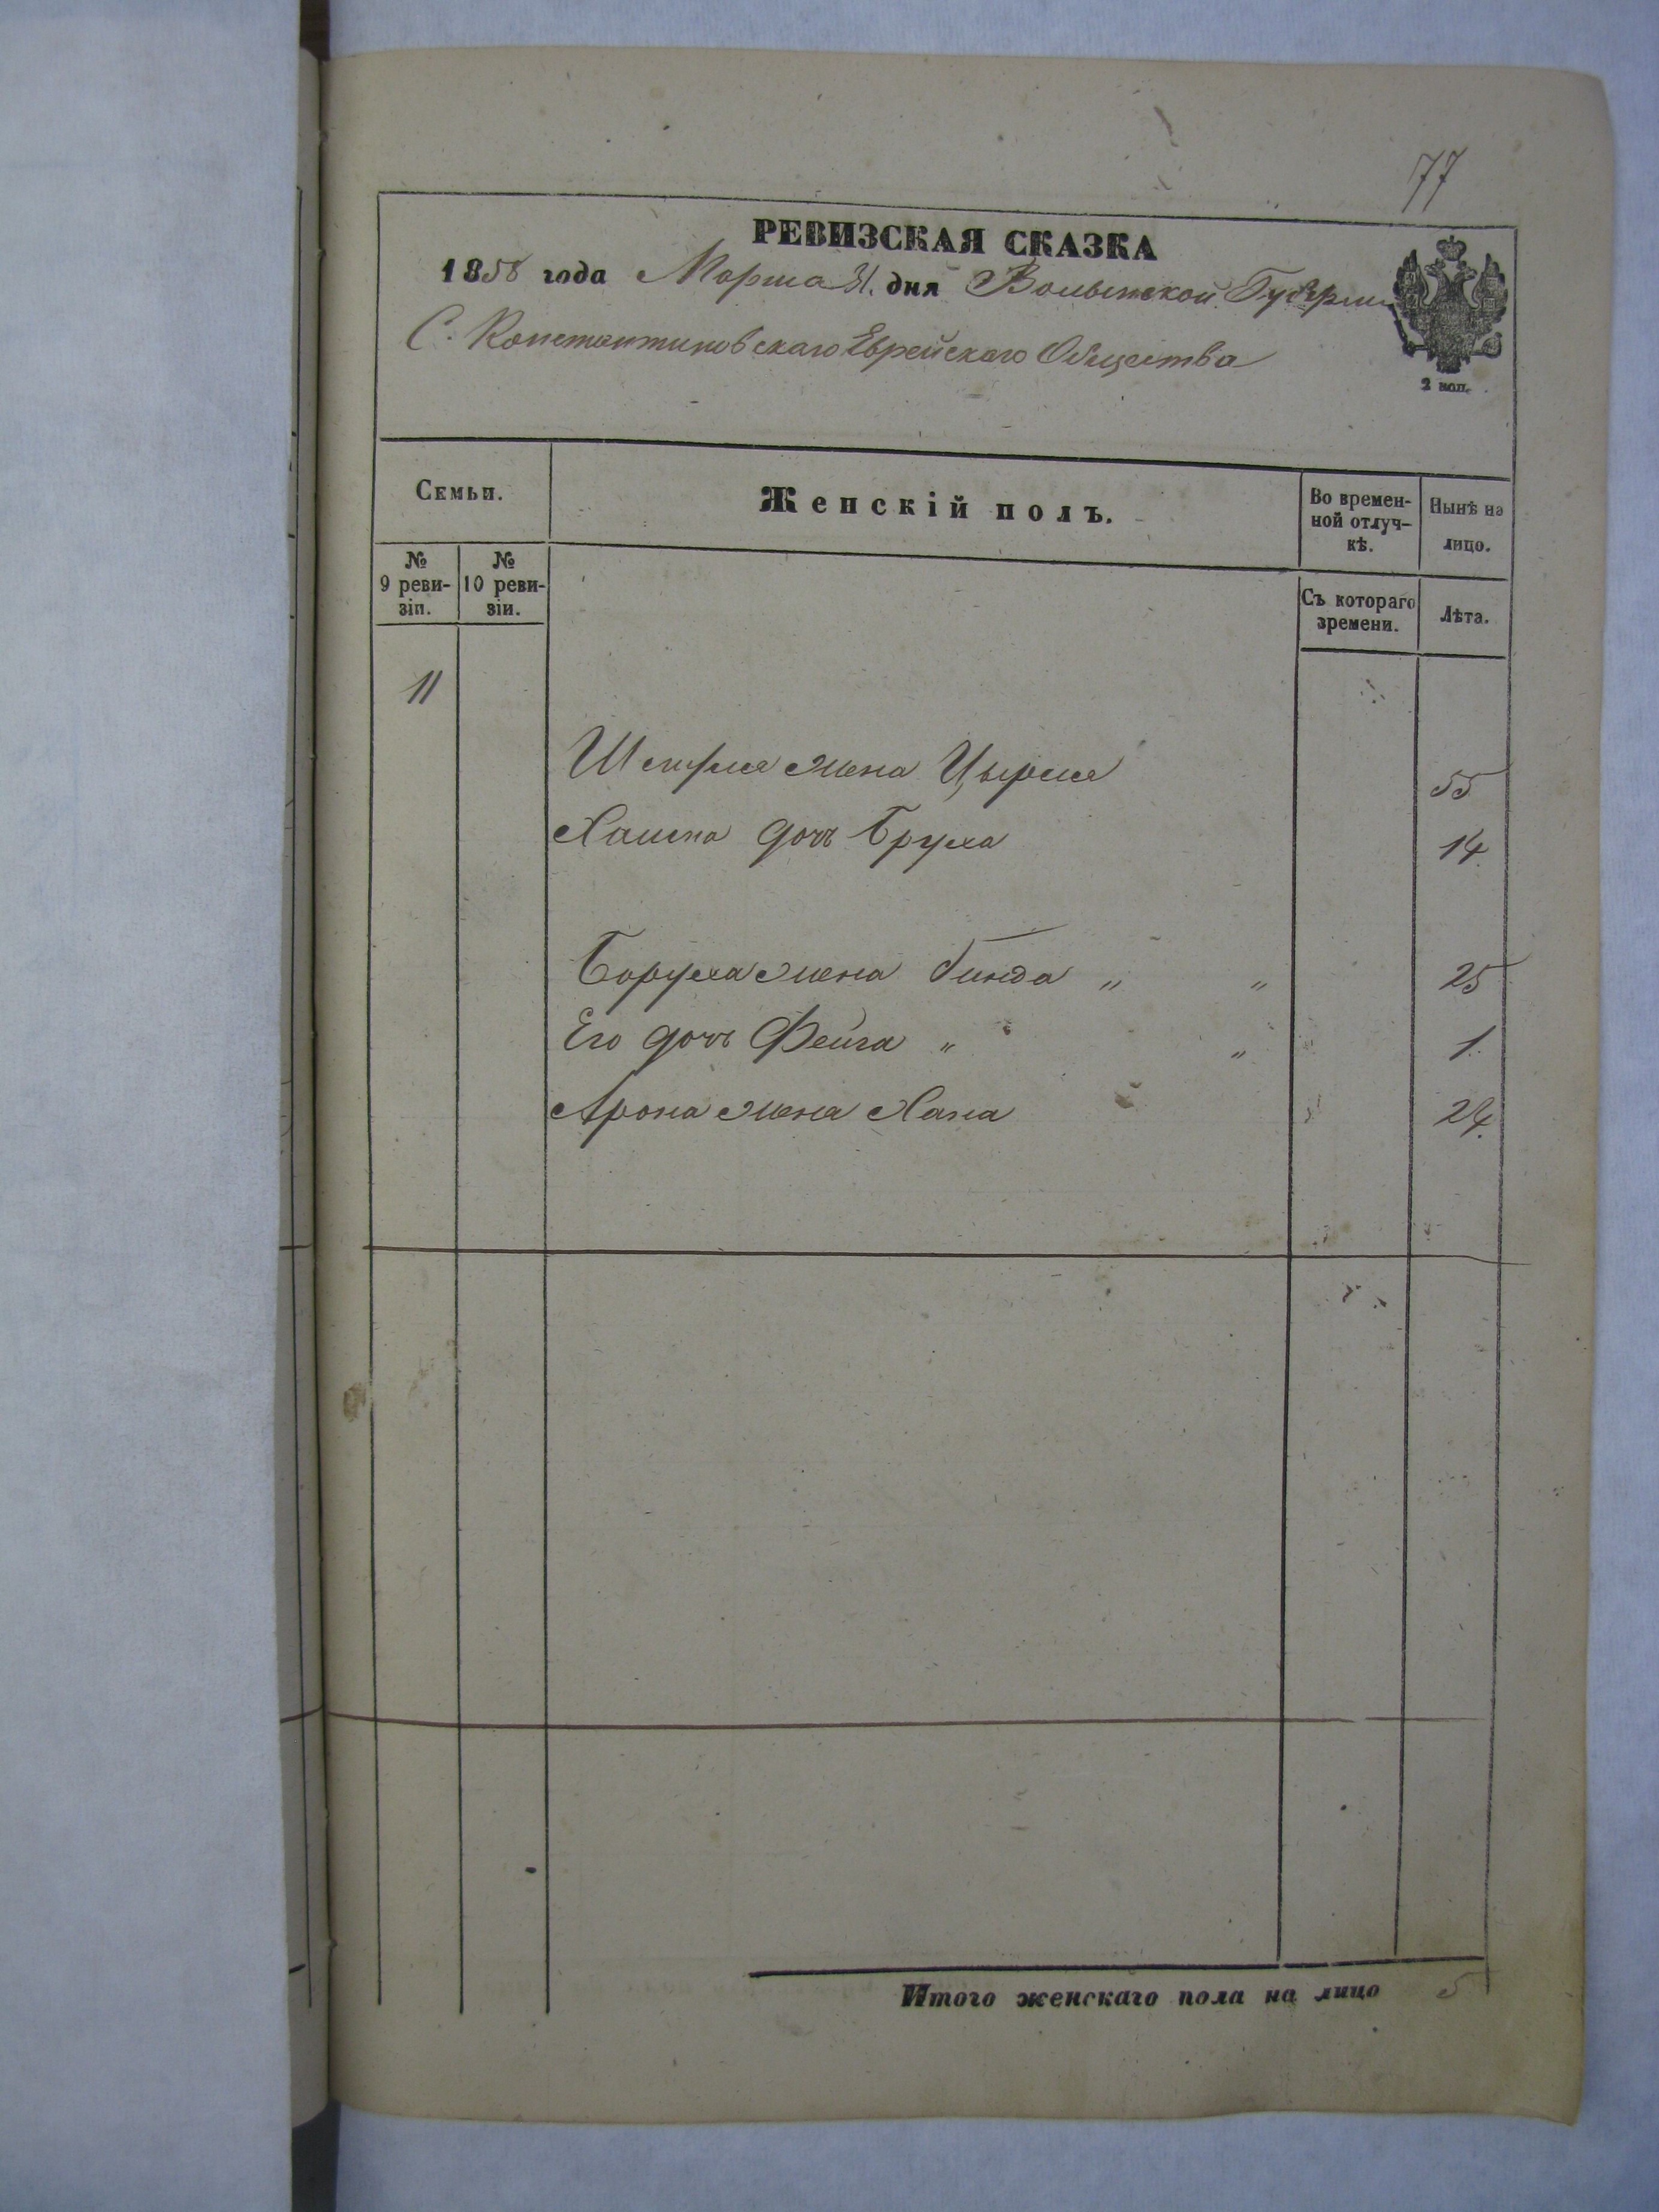 77
РЕВИЗСКАЯ СКАЗКА
1858 года Марта 31. дня Волынской Губерніи
С. Константиновскаго Еврейскаго Общества
2 коп.
Семьи.
Женскій полъ.
Во времен-
ной отлуч-
кѣ.
Нынѣ на
лицо.
№
9 реви-
зіи.
№
10 реви-
зіи.
Съ котораго
времени.
Лѣта.
11
жена Цырля 55
дочь Бруха 14
Боруха жена Гинда " " 25
Его дочь Фейга " " 1.
Арона жена Хана 24.
Итого женскаго пола на лицо 5